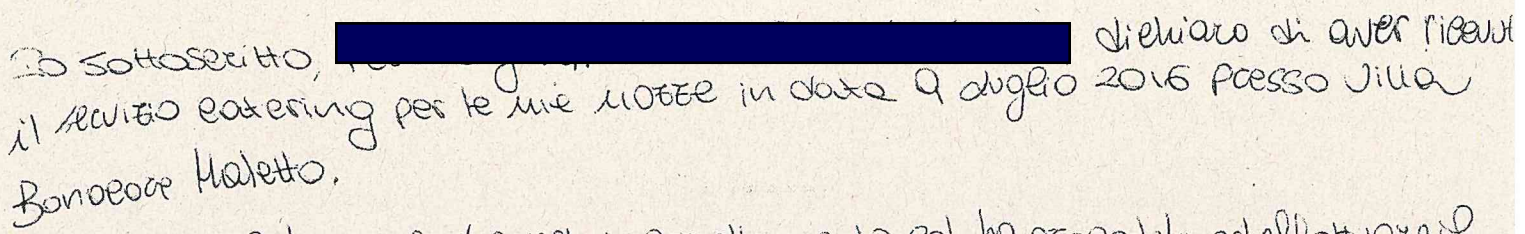 Io sottoscritto, dichiaro di aver ricevut
il servizio catering per le mie nozze in data 9 luglio 2016 presso Villa
Bonocore Maletto.